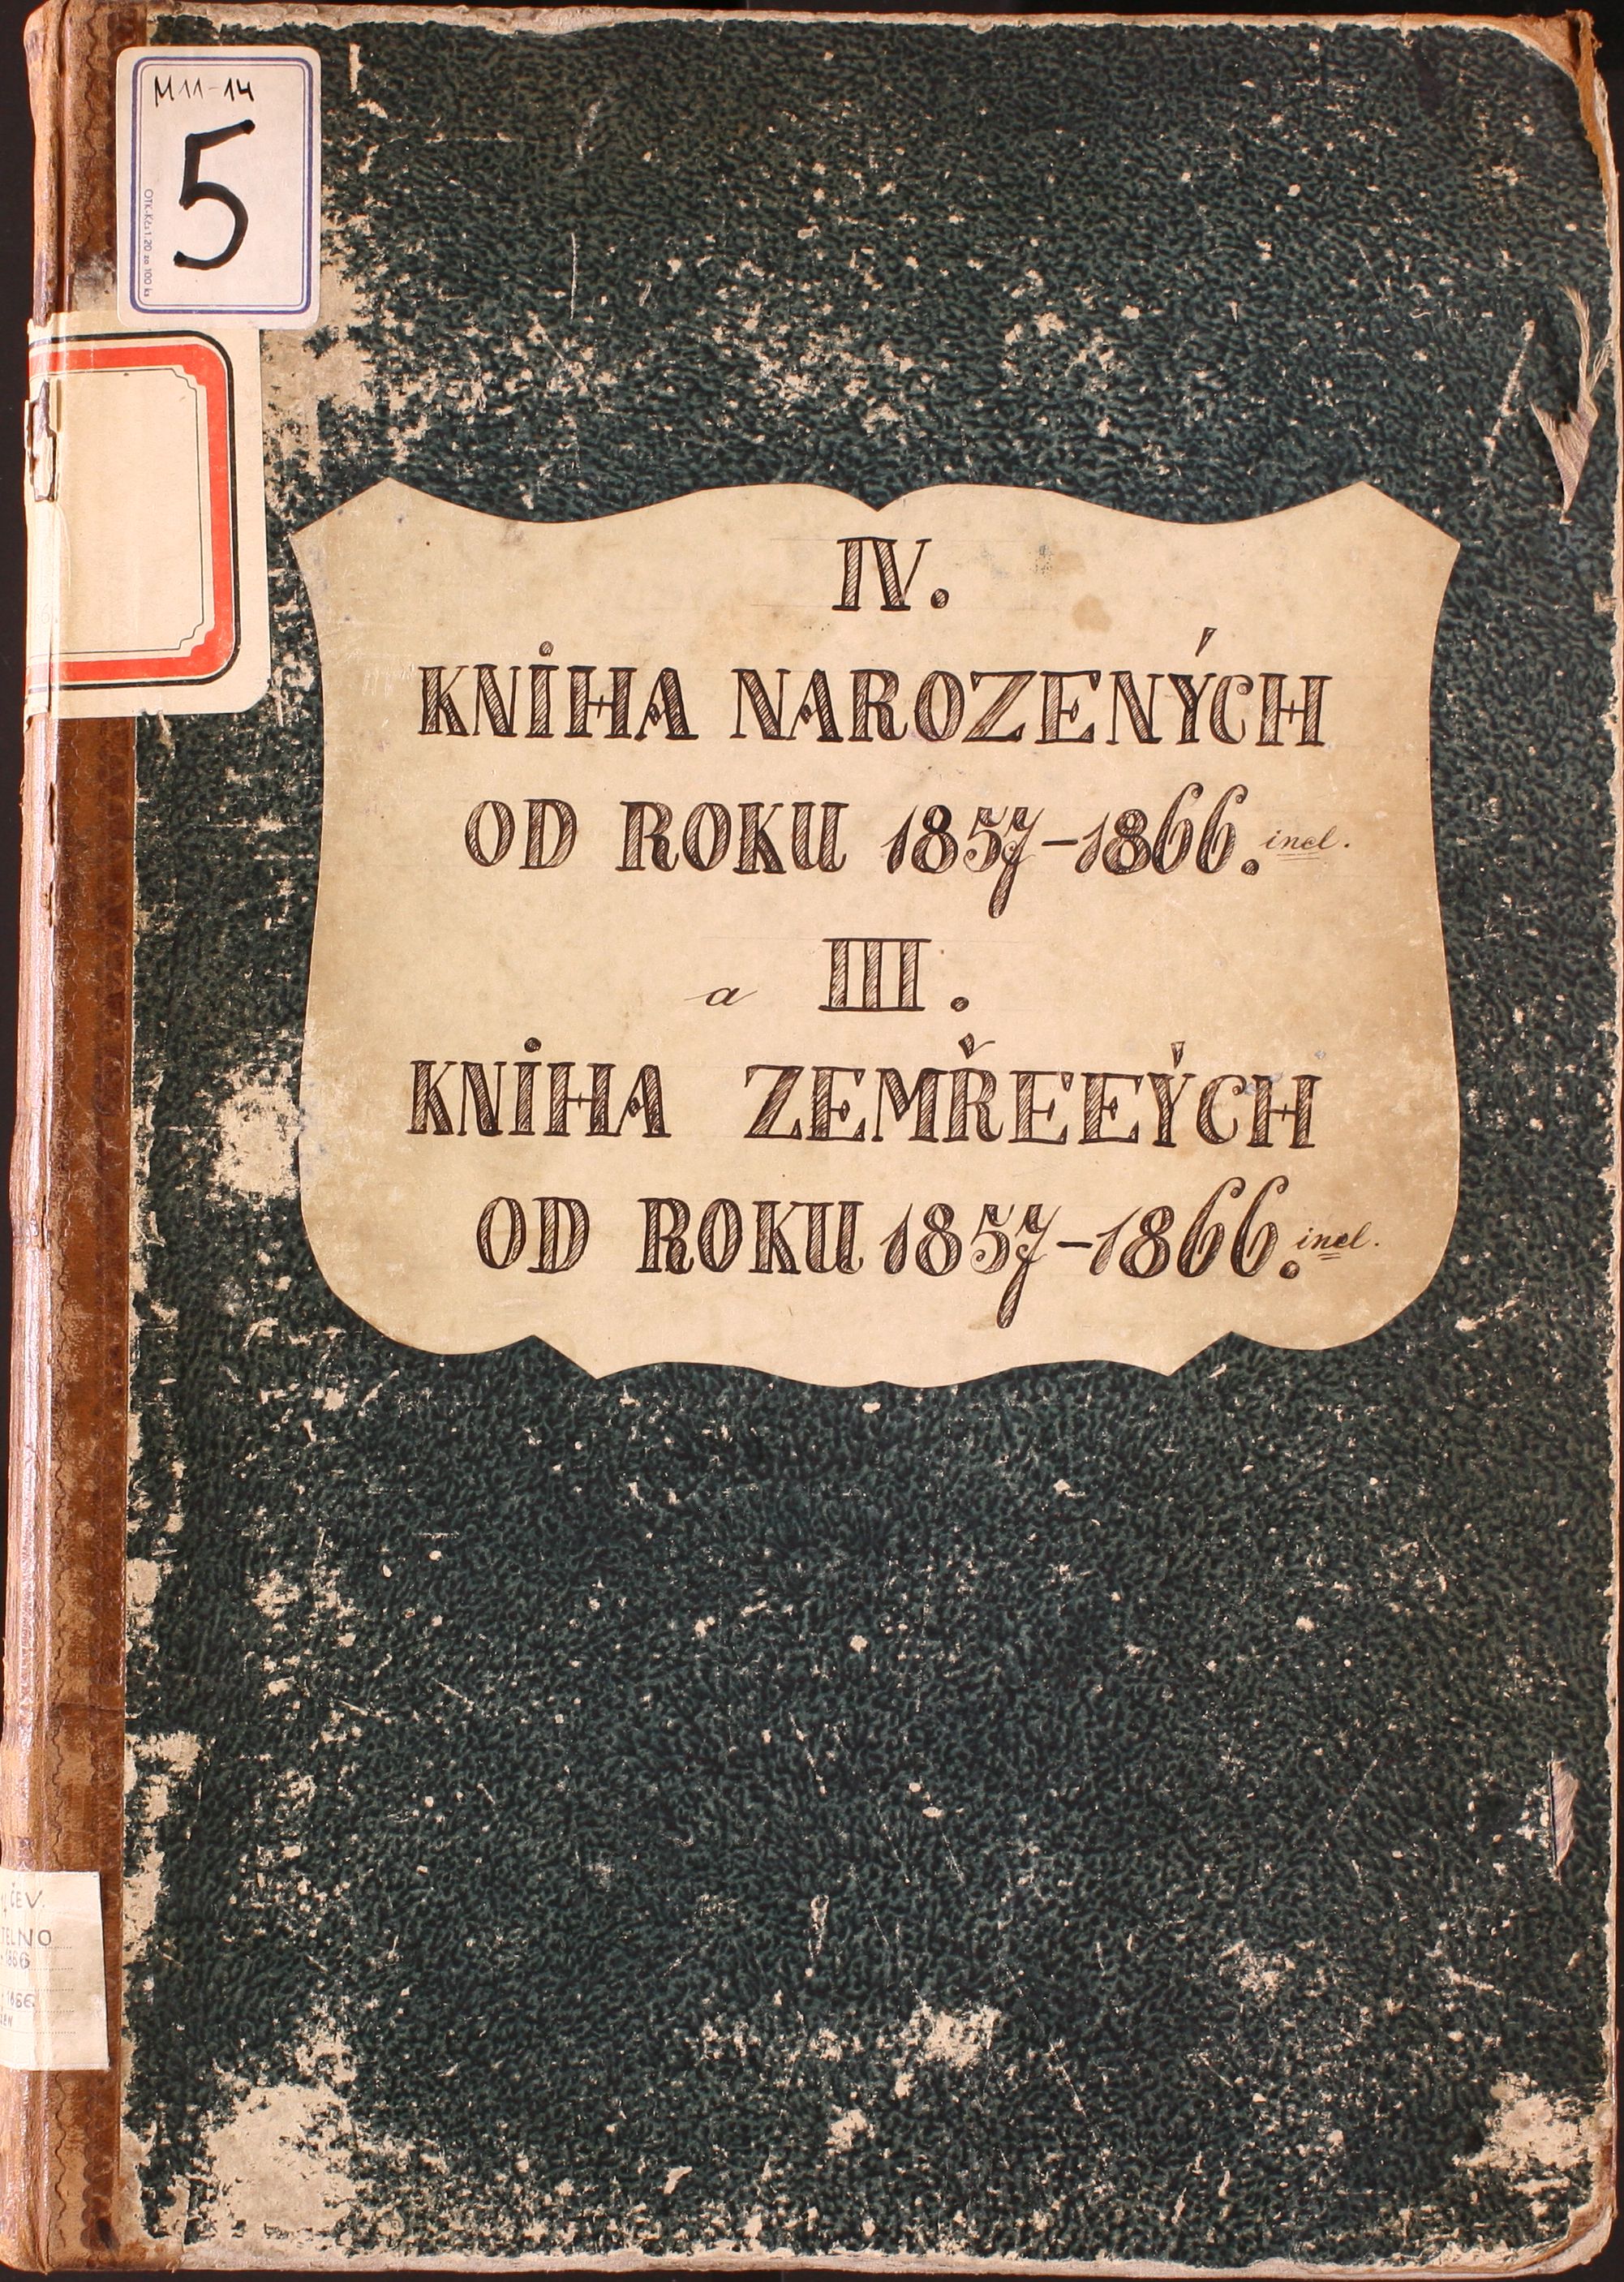 M11-14
5
OTK-Kčs 1,20 za 100 ks
IV.
KNIHA NAROZENÝCH
OD ROKU 1857-1866. incl.
a III.
KNIHA ZEMŘEEÝCH
OD ROKU 1857-1866. incl.
ČEV.
TELNO
1866